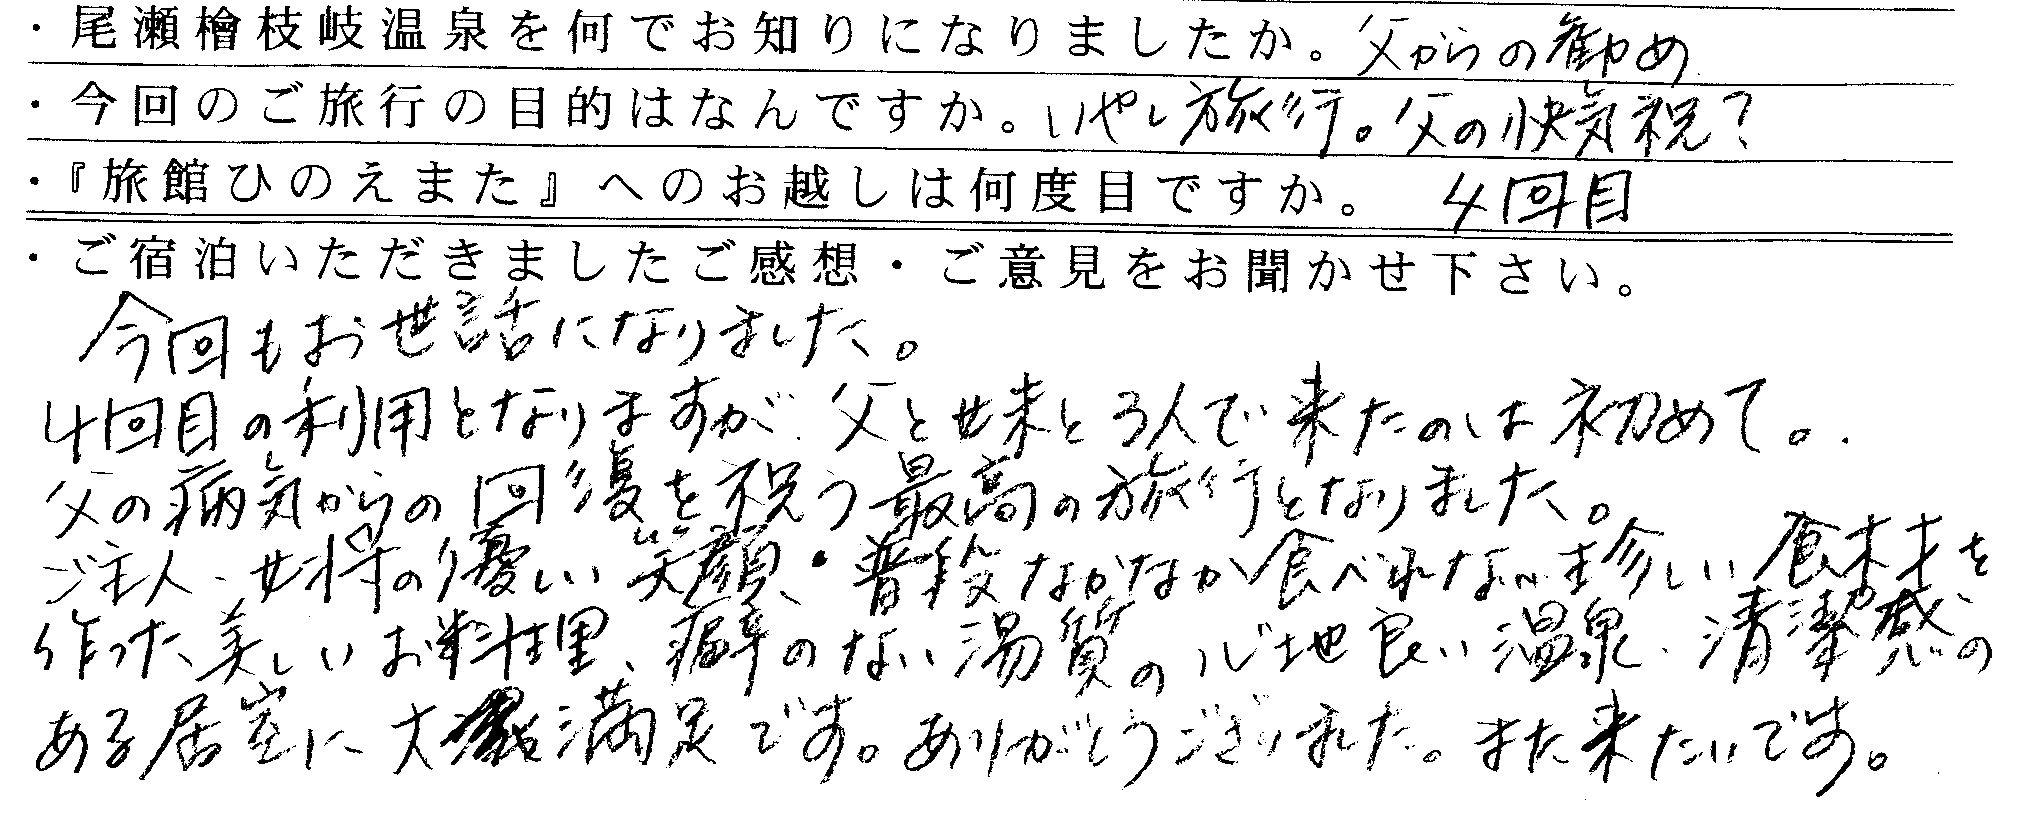 ・尾瀬檜枝岐温泉を何でお知りになりましたか。父からの勧め
・今回のご旅行の目的はなんですか。いやし旅行。父の快気祝?
・『旅館ひのえまた』へのお越しは何度目ですか。 4回目
・ご宿泊いただきましたご感想・ご意見をお聞かせ下さい。
今回もお世話になりました。
4回目の利用となりますが、父と妹と3人で来たのは初めて。
父の病気からの回復を祝う最高の旅行となりました。
ご主人、女将の優しい笑顔、普段なかなか食べれない珍しい食材を
作った美しいお料理、癖のない湯質の心地良い温泉、清潔感の
ある居室に大満足です。ありがとうございました。また来たいです。